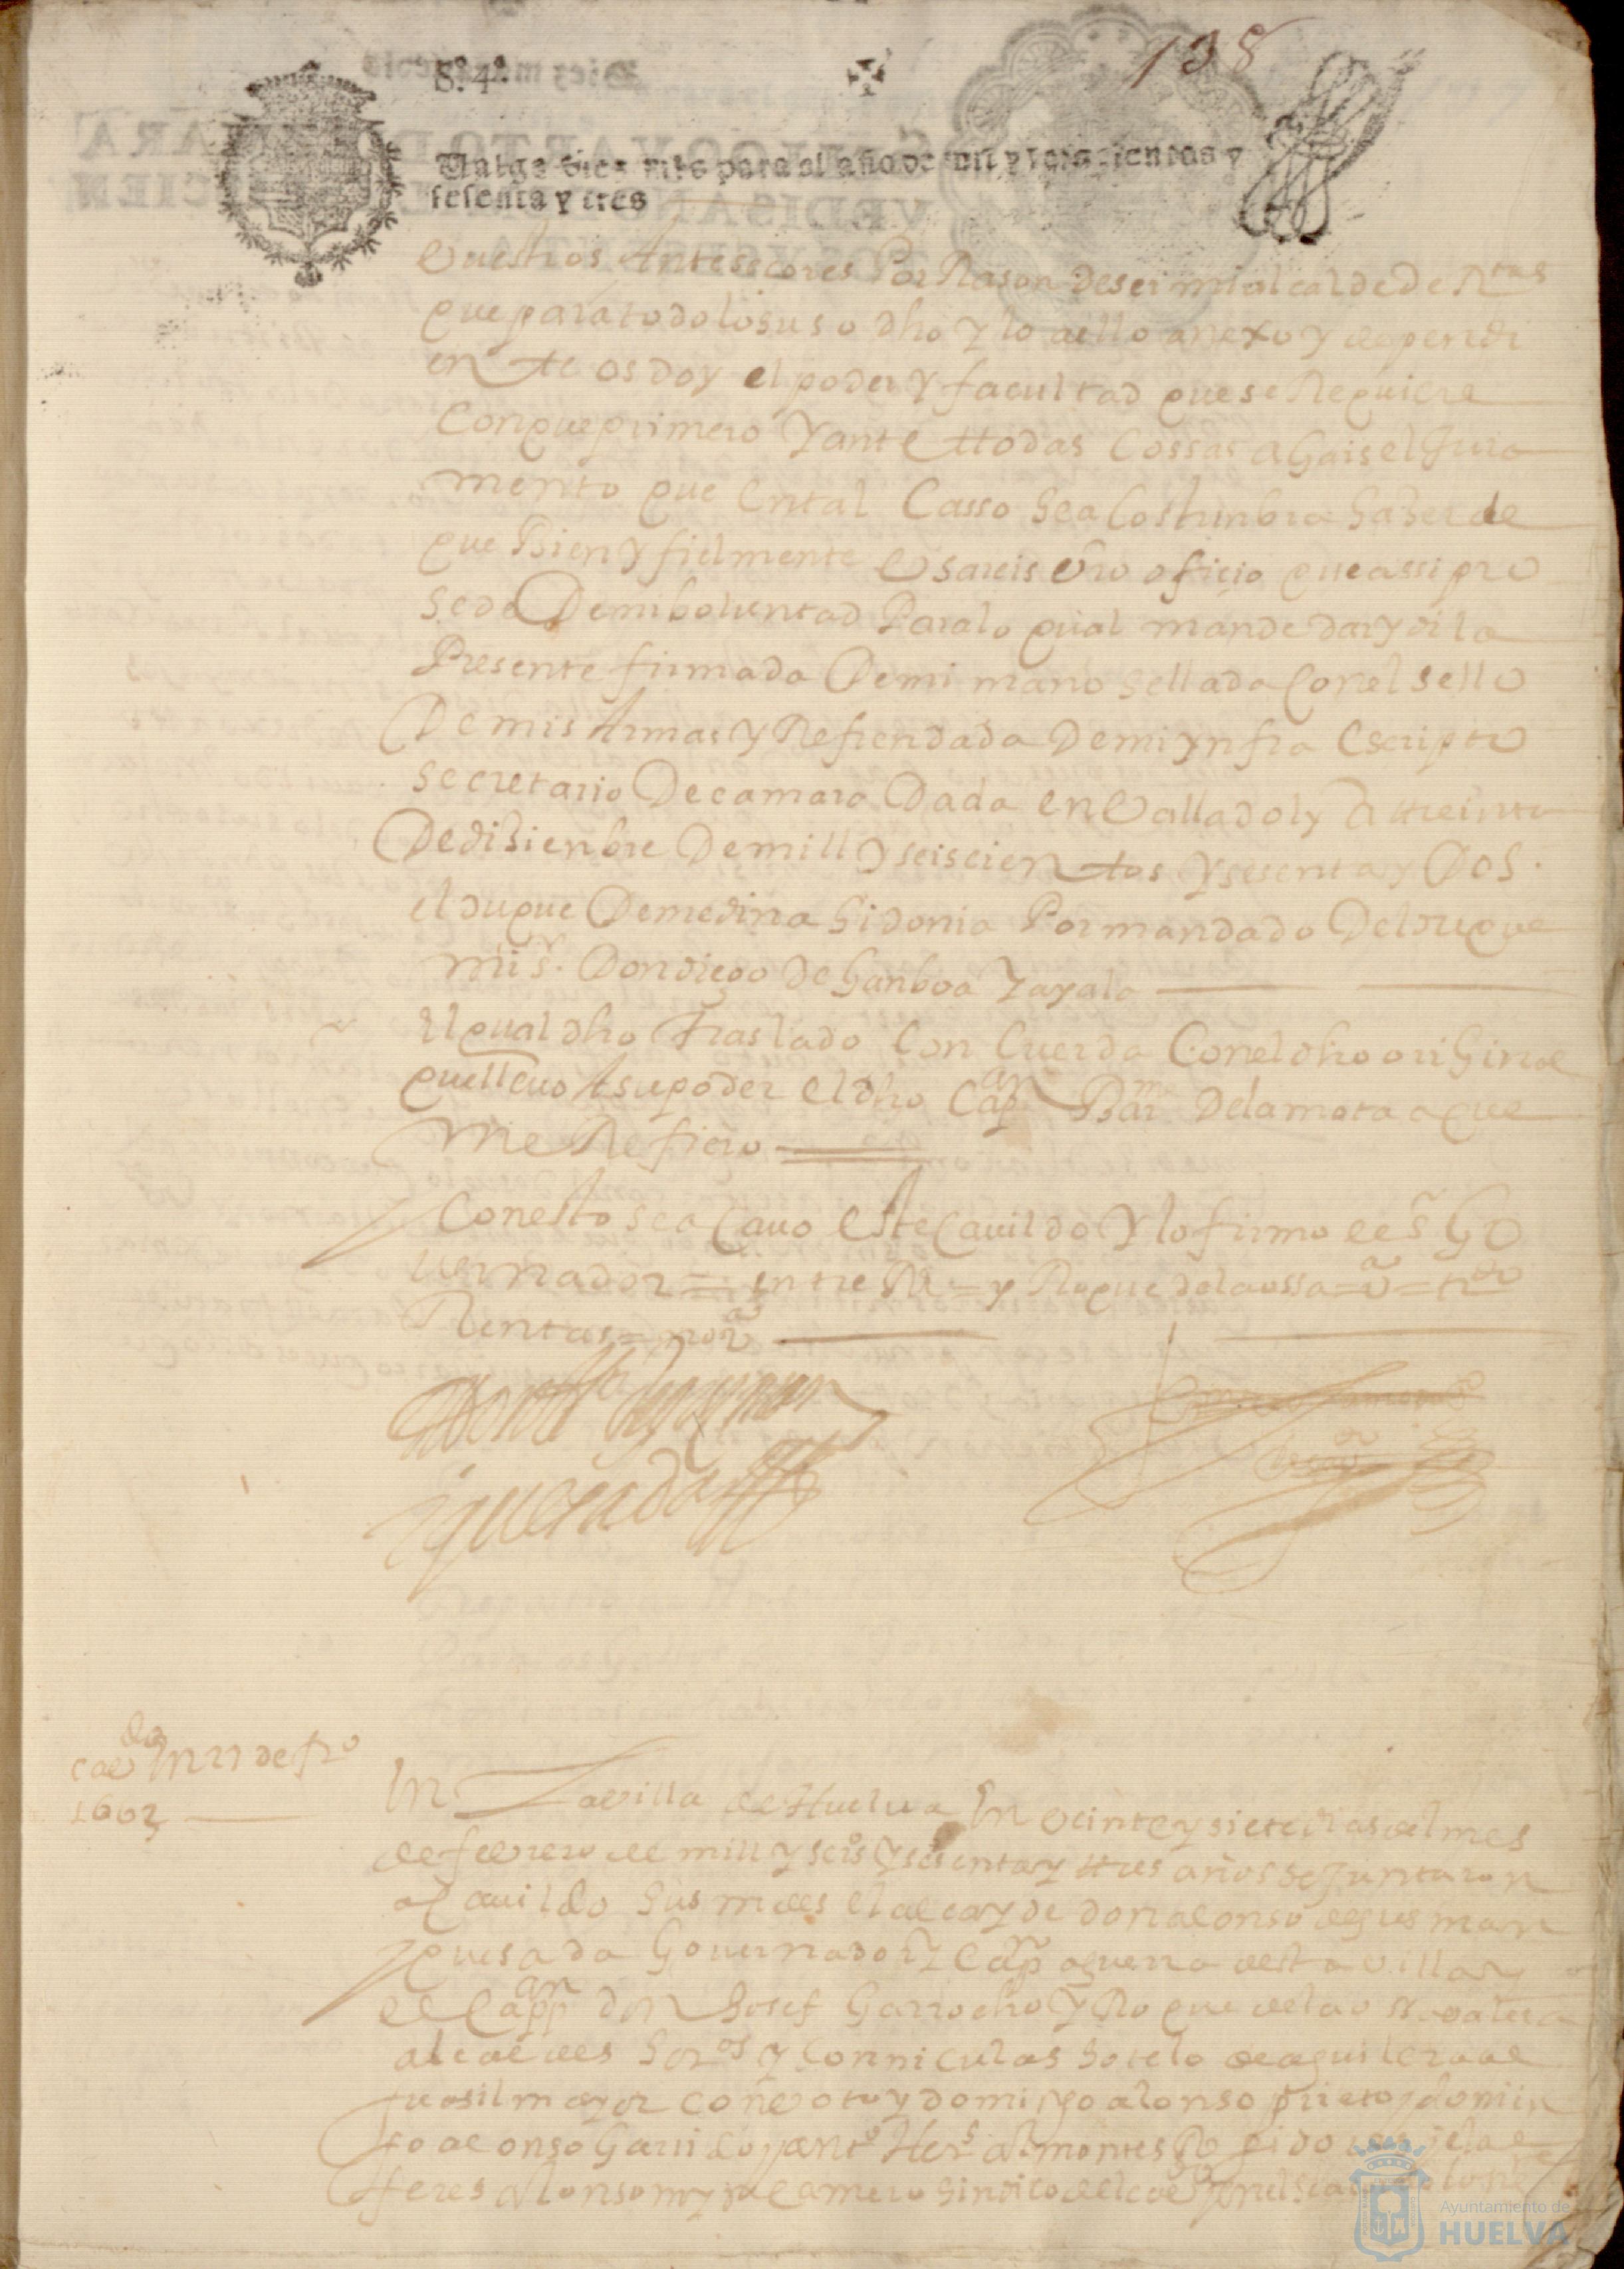 138
S.º 4.º
Valga diez mrs para el año de mil y seiscientos y
sesenta y tres
Vuestros Antesesores Por Rason de ser mi alcalde de Rtas
que para todo lo suso dho y lo a ello anexo y dependi
ente os doy el poder y facultad que se Requiere
Con que primero y ante ttodas Cossas agais el Jura
mento que En tal Casso se a Costunbra haser de
que Bien y fielmente Usareis vro oficio que assi pro
sede De mi boluntad Para lo qual mande dar y di la
Presente firmada De mi mano sellada Con el sello
De mis Armas y Refrendada De mi ynfra escripto
secretario De camara Dada en Valladoly A ttreinta
De disienbre De mill y seiscientos y sesenta y Dos.
el duque De medina Sidonia Por mandado Del duque
mi sr. Don diego de Ganboa Y ayala
El qual dho Traslado Con Cuerda Con el dho oriGinal
que lleuo A su poder el dho Capan Barme De la mota a que
me Refiero
Con esto se a Cauo este Cauildo y lo firmo el sr Go
uernador = entre Rs = y Roque de la ossa = va =
Rentas = no va
Don Alo de guzman
quesada
cavdo En 27 de fro
1663
En La villa de Huelua En veinte y siete dias del mes
de febrero de mill y seiso y sesenta y ttres años se Juntaron
a Cauildo sus mdes el alcayde don alonso de gusman
quesada Gouernador y Capan a guerra desta villa y
el Capan don Josef Garrocho y Roque de la ossa
alcaldes hordros y Con niculas sotelo de aguilera al
guasil mayor con voto y domingo alonso prieto y domin
go alonso Garrido y anto Hers Regidores y el al
feres Alonso sindico del
Ayuntamiento de
HUELVA